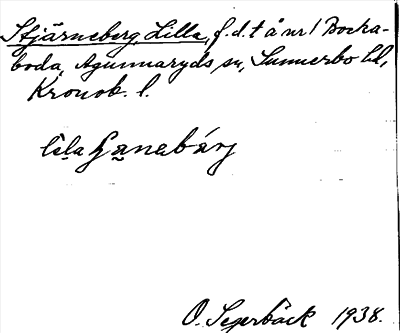 Stjärneberg, Lilla, f. d. t å nr 1 Bocka-
boda, Agunnaryds sn, Sunnerbo hd,
Kronob. l.
O. Segerbäck 1938.